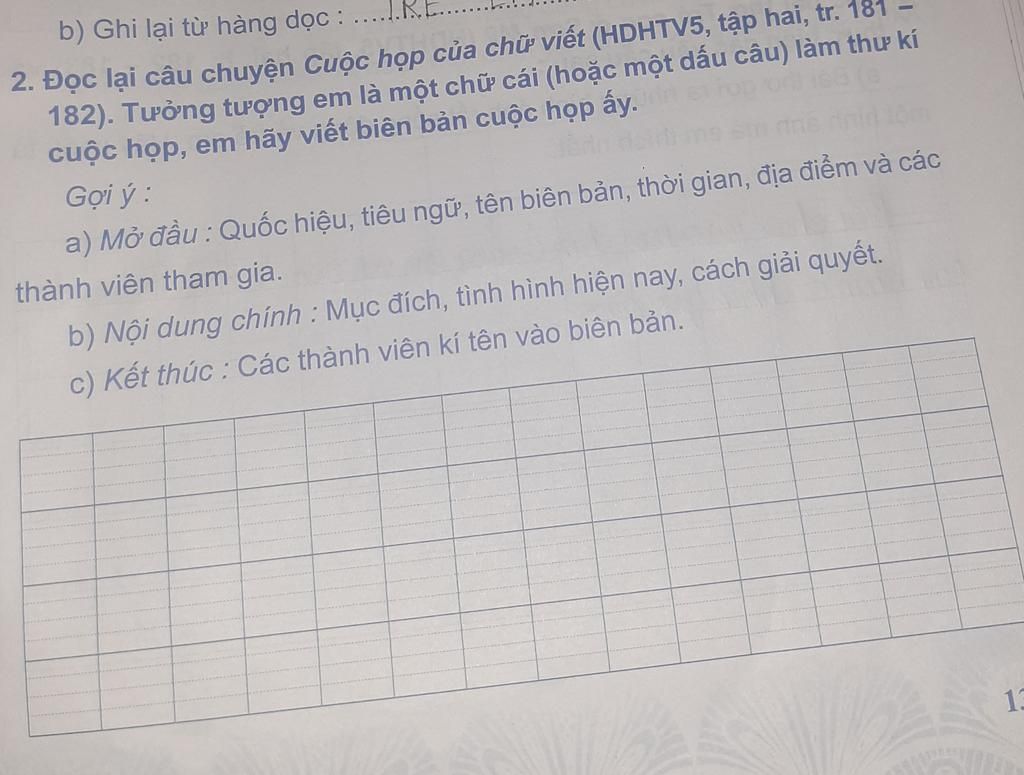 b) Ghi lại từ hàng dọc : .....
2. Đọc lại câu chuyện Cuộc họp của chữ viết (HDHTV5, tập hai, tr. 181 –
182). Tưởng tượng em là một chữ cái (hoặc một dấu câu) làm thư kí
cuộc họp, em hãy viết biên bản cuộc họp ấy.
Gợi ý :
a) Mở đầu : Quốc hiệu, tiêu ngữ, tên biên bản, thời gian, địa điểm và các
thành viên tham gia.
b) Nội dung chính : Mục đích, tình hình hiện nay, cách giải quyết.
c) Kết thúc : Các thành viên kí tên vào biên bản.